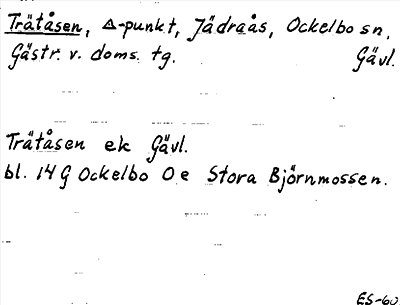 Trätåsen, △-punkt, Jädraås, Ockelbo sn,
Gästr. v. doms. tg. Gävl.
Trätåsen ek Gävl.
bl. 14 G Ockelbo O e Stora Björnmossen.
ES-60